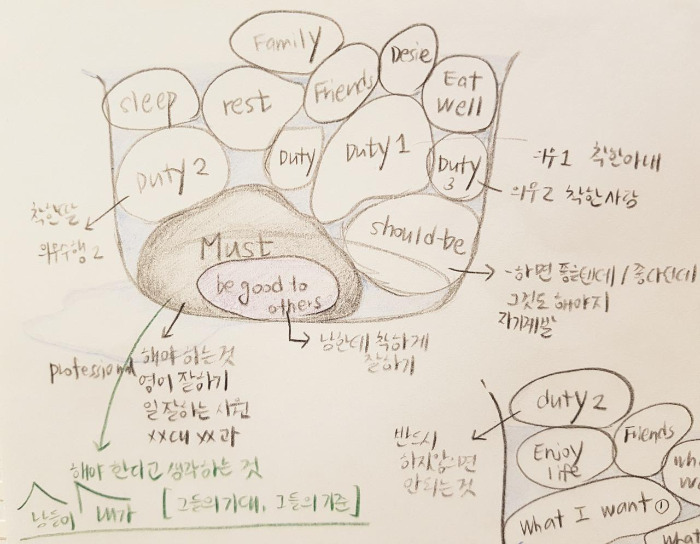 Family
Desie
sleep
rest
Friends
Eat
well
Duty 2
Duty
Duty 1
Duty
3
의무1 착한아내
의무2 착한사람
착한딸
의무수행 2
Must
should-be
be good to
others
-하면 좋을텐데 / 좋다던데
그것도 해야지
자기계발
남한테 착하게
잘하기
professional
해야 하는 것
영어 잘하기
일 잘하는 사원
xx대 xx과
해야 한다고 생각하는 것
남들이 내가 [그들의 기대, 그들의 기준]
반드시
하지않으면
안되는 것
duty 2
Enjoy
life
Friends
What I want ①